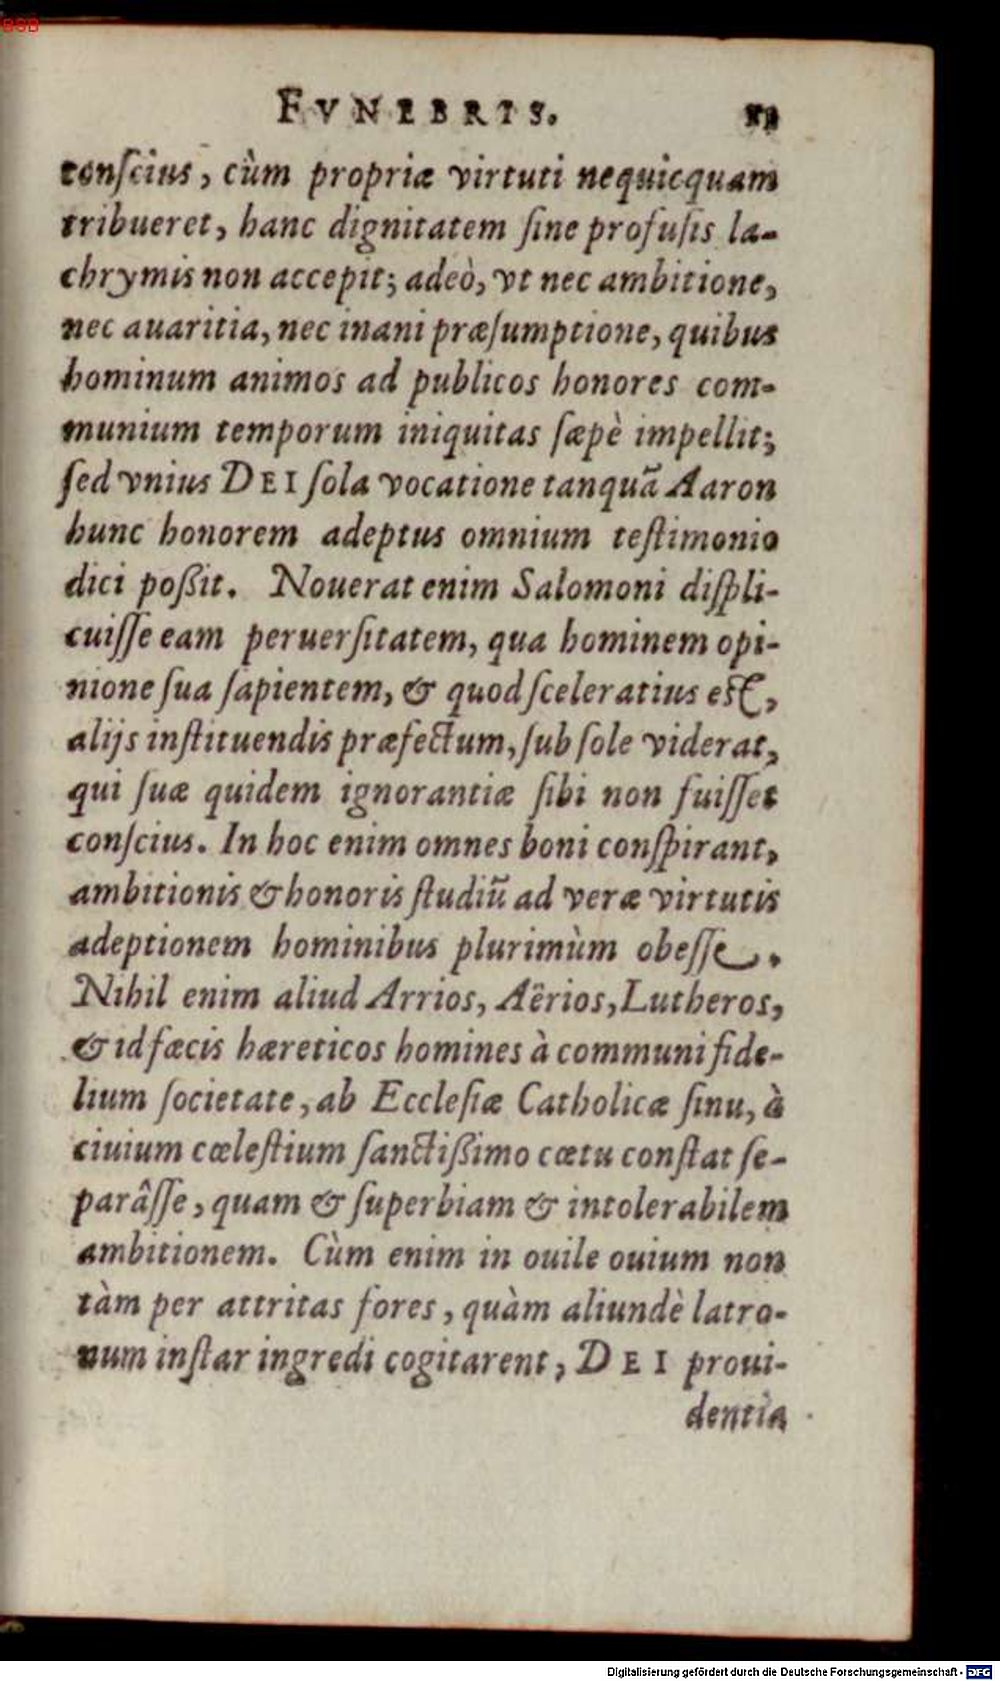 BSB
FVNEBRIS.
conſcius, cùm propriæ virtuti nequicquam
tribueret, hanc dignitatem ſine profuſis la-
chrymis non accepit; adeò, vt nec ambitione,
nec auaritia, nec inani præſumptione, quibus
hominum animos ad publicos honores com-
munium temporum iniquitas ſæpè impellit;
ſed vnius DEI ſola vocatione tanquā Aaron
hunc honorem adeptus omnium teſtimonio
dici poßit. Nouerat enim Salomoni diſpli-
cuiſſe eam peruerſitatem, qua hominem opi-
nione ſua ſapientem, & quod ſceleratius eſt,
alijs inſtituendis præfectum, ſub ſole viderat,
qui ſuæ quidem ignorantiæ ſibi non fuiſſet
conſcius. In hoc enim omnes boni conſpirant,
ambitionis & honoris ſtudiū ad veræ virtutis
adeptionem hominibus plurimùm obeſſe.
Nihil enim aliud Arrios, Aêrios, Lutheros,
& id fæcis hæreticos homines à communi fide-
lium ſocietate, ab Eccleſiæ Catholicæ ſinu, à
ciuium cœleſtium ſanctißimo cœtu conſtat ſe-
parâſſe, quam & ſuperbiam & intolerabilem
ambitionem. Cùm enim in ouile ouium non
tàm per attritas fores, quàm aliundè latro-
num inſtar ingredi cogitarent, DEI proui-
dentia
Digitalisierung gefördert durch die Deutsche Forschungsgemeinschaft - DFG